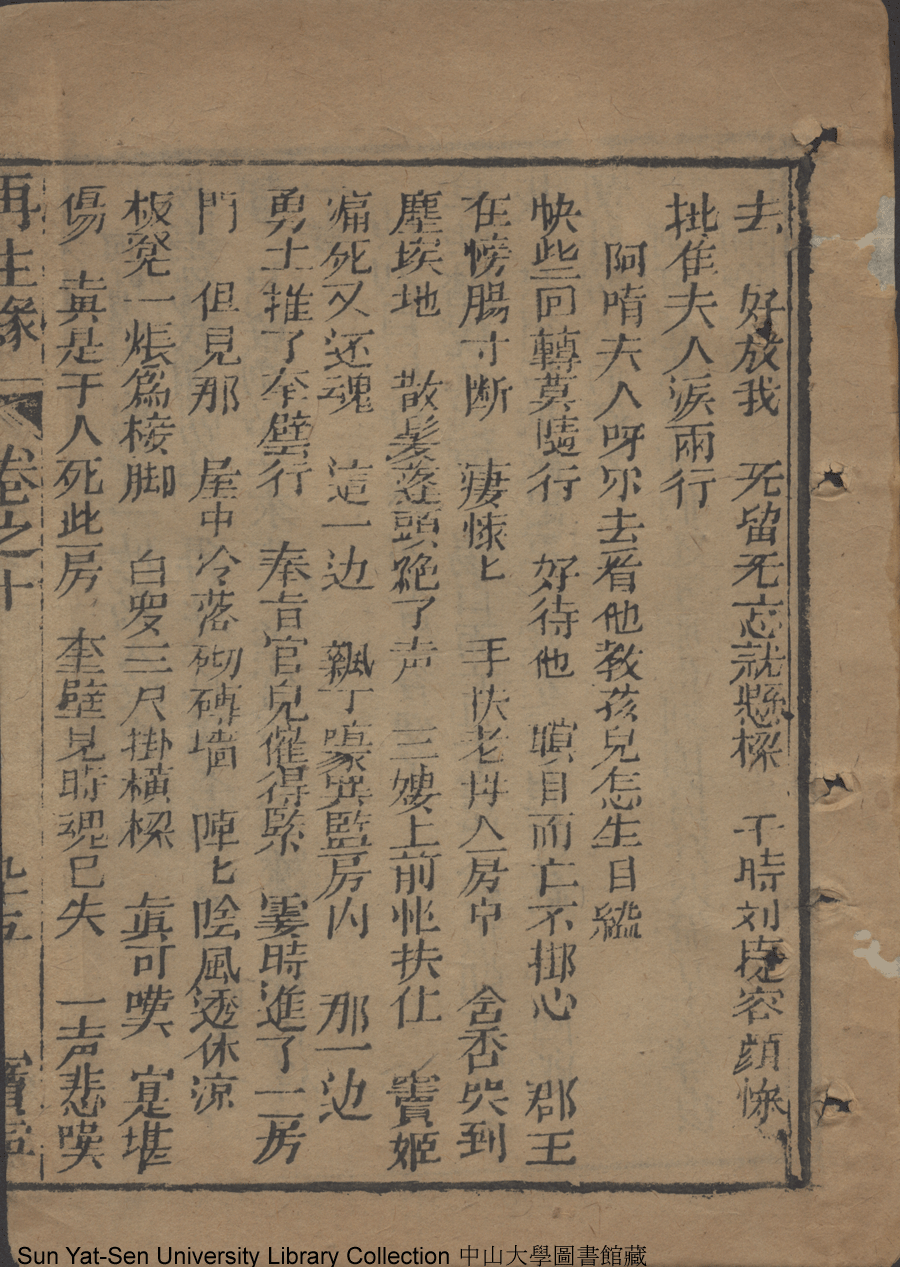 去　好放我　死留死忘就懸樑　于時刘㨗容顔惨
扯隹夫人淚兩行
阿唷夫人呀尔去看他教孩兒怎生目縱
快些回轉莫隨行　好待他　瞑目而亡不掷心　郡王
在傍腸寸断　凄惨匕　手快老丹入房中　舍香哭到
塵埃地　散髮蓬頭絶了声　三嫂上前忙扶住　竇姬
痛死又还魂　這一边　飄丁嚎哭監房内　那一边
勇士推了奎壁行　奉旨官兒催得緊　霎時進了一房
門　但見那　屋中冷落砌磚墙　陣匕陰風透休凉
板凳一張爲接脚　白罗三尺掛横樑　真可嘆　寔堪
傷　真是于人死此房　奎壁見時魂已失　一声悲嘆
再生緣　卷之十　九十五　寳
Sun Yat-Sen University Library Collection 中山大學圖書館藏